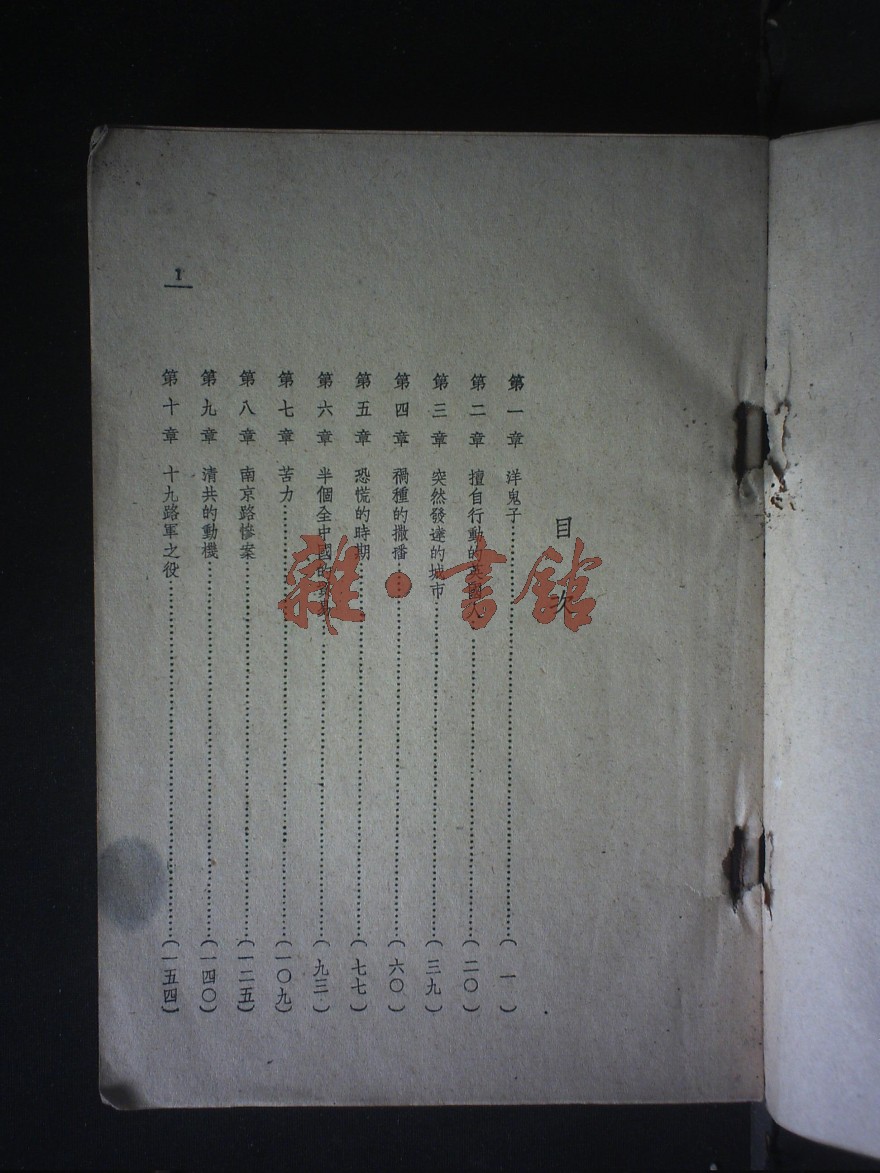 目次
第一章 洋鬼子……(一)
第二章 擅自行動的……(二〇)
第三章 突然發達的城市……(三九)
第四章 禍種的撒播……(六〇)
第五章 恐慌的時期……(七七)
第六章 半個全中國的……(九三)
第七章 苦力……(一〇九)
第八章 南京路慘案……(一二五)
第九章 清共的動機……(一四〇)
第十章 十九路軍之役……(一五四)
1
雜·書館